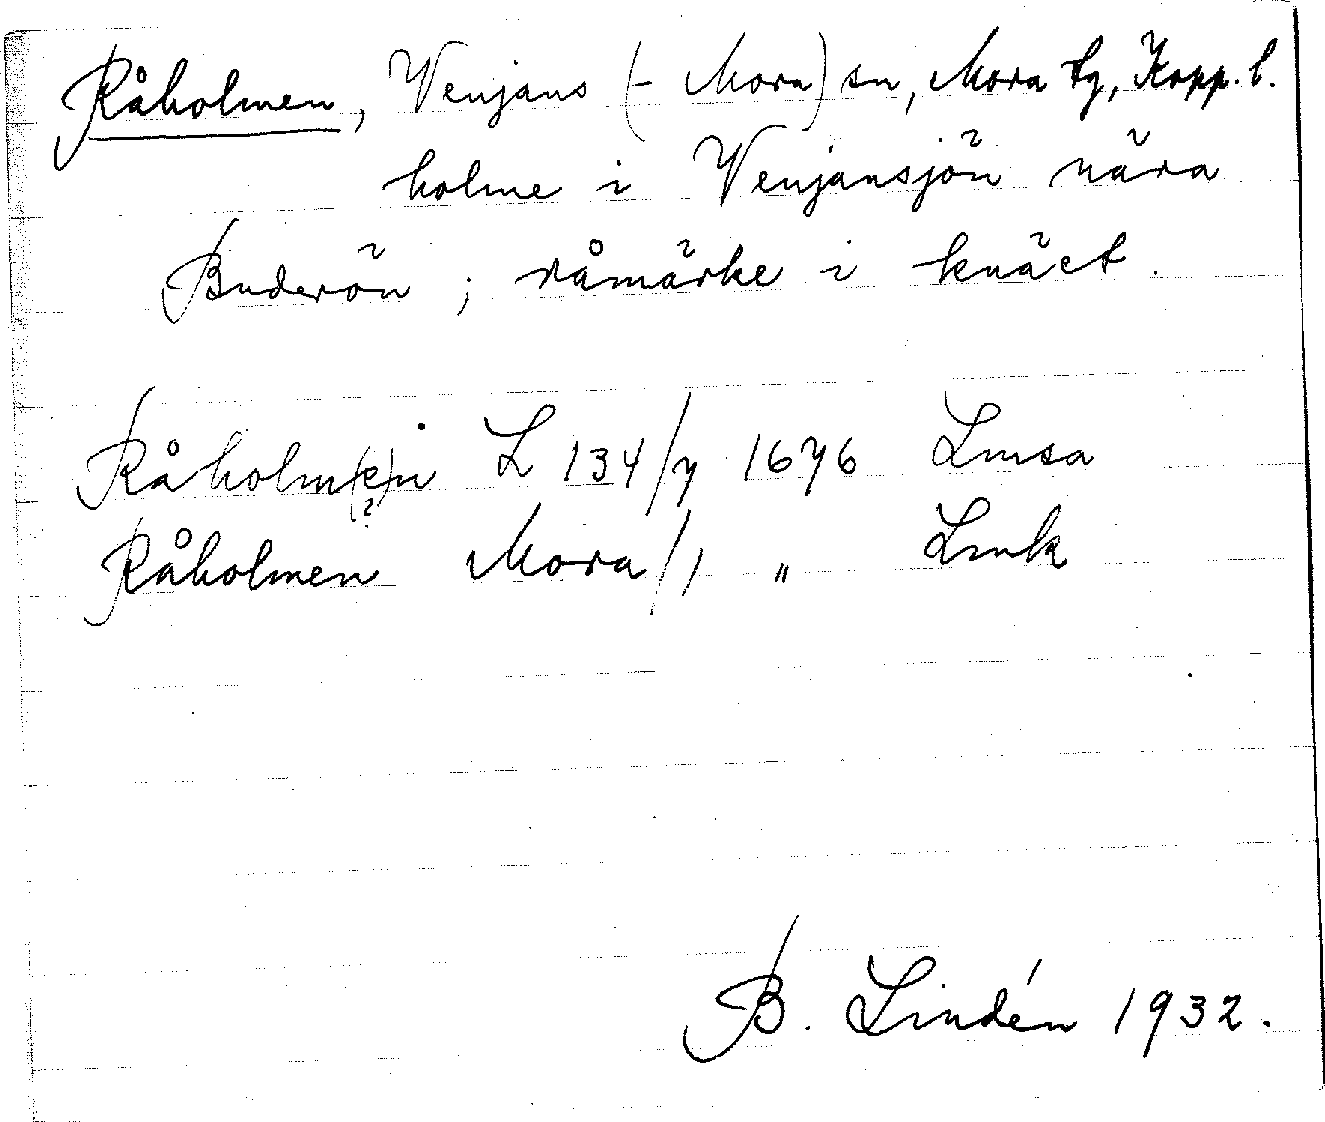 Råholmen, Venjans (- Mora) sn, Mora tg, Kopp. l.
holme i Venjansjön nära
Buderön ; råmärke i knäet.
Råholm(e)n L 134/7 1676 Lmsa
(?)
Råholmen Mora/1 " Lmk
B. Lindén 1932.